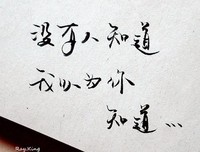 没有人知道
我以为你
知道…
RayKing